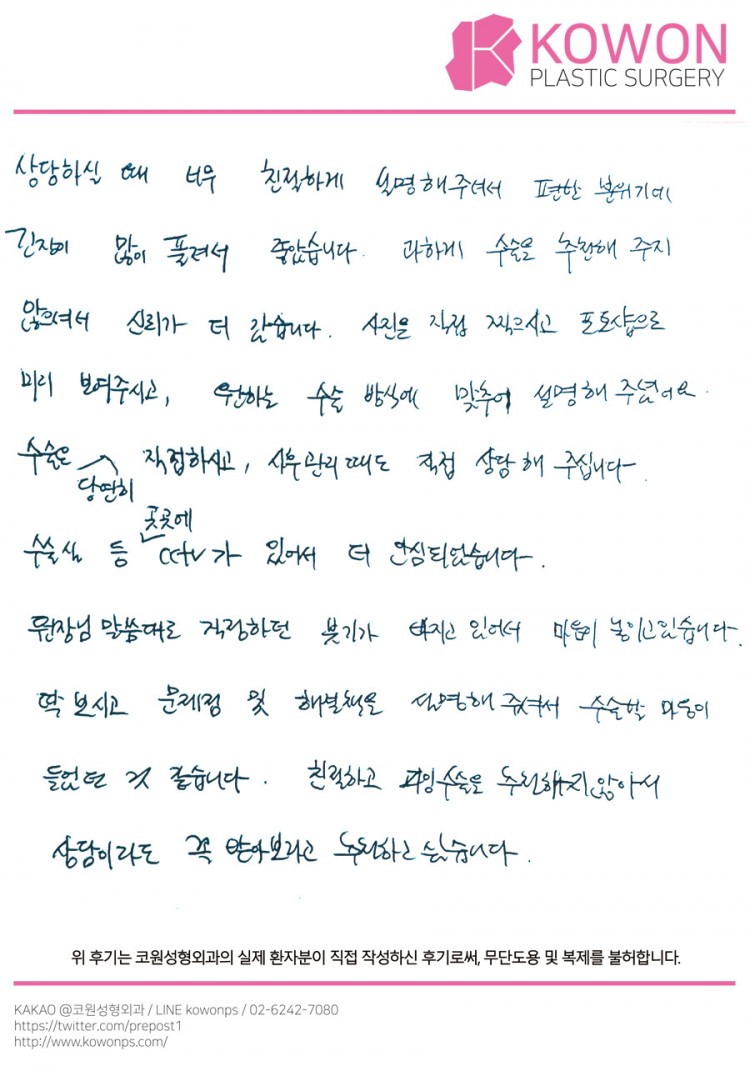 KOWON
PLASTIC SURGERY
상담하실 때 너무 친절하게 설명해주셔서 편한 분위기에
긴장이 많이 풀려서 좋았습니다. 과하게 수술을 추천해 주지
않으셔서 신뢰가 더 갔습니다. 사진을 직접 찍으시고 포토샵으로
미리 보여주시고, 원하는 수술 방식에 맞추어 설명해 주셨어요.
수술은 당연히 직접하시고, 사후관리 때도 직접 상담해 주십니다.
수술실 등 곳곳에 cctv가 있어서 더 안심되었습니다.
원장님 말씀대로 걱정하던 붓기가 빠지고 있어서 마음이 놓이고있습니다.
딱 보시고 문제점 및 해결책을 설명해 주셔서 수술할 마음이
들었던 것 같습니다. 친절하고 과잉수술을 추천해지않아서
상담이라도 꼭 받아보라고 추천하고 싶습니다.
위 후기는 코원성형외과의 실제 환자분이 직접 작성하신 후기로써, 무단도용 및 복제를 불허합니다.
KAKAO @코원성형외과 / LINE kowonps / 02-6242-7080
https://twitter.com/prepost1
http://www.kowonps.com/